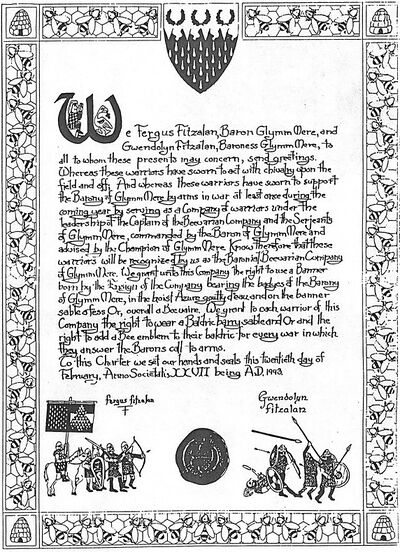 We Fergus Fitzalan, Baron Glymm Mere, and
Gwendolyn Fitzalan, Baroness Glymm Mere, to
all to whom these presents may concern, send greetings.
Whereas these warriors have sworn to act with chivalry upon the
field and off. And whereas these warriors have sworn to support
the Barony of Glymm Mere by arms in war at least once during the
coming year by serving as a Company of warriors under the
leadership of the Captain of the Beewarian Company and the Serjeants
of Glymm Mere, commanded by the Baron of Glymm Mere and
advised by the Champion of Glymm Mere. Know therefore that these
warriors will be recognized by us as the Baronial Beewarian Company
of Glymm Mere. We grant unto this Company the right to use a Banner
born by the Ensign of the Company bearing the badges of the Barony
of Glymm Mere, in the hoist Azure goutty d'eau and on the banner
sable a fess Or, overall a Beewaire. We grant to each warrior of this
Company the right to wear a Baldric barry sable and Or and the
right to add a Bee emblem to their baldric for every war in which
they answer the Barons call to arms.
To this Charter we set our hands and seals this twentieth day of
February, Anno Societatis XXVII being A.D. 1993.
fergus fitzalan
Gwendolyn
Fitzalan